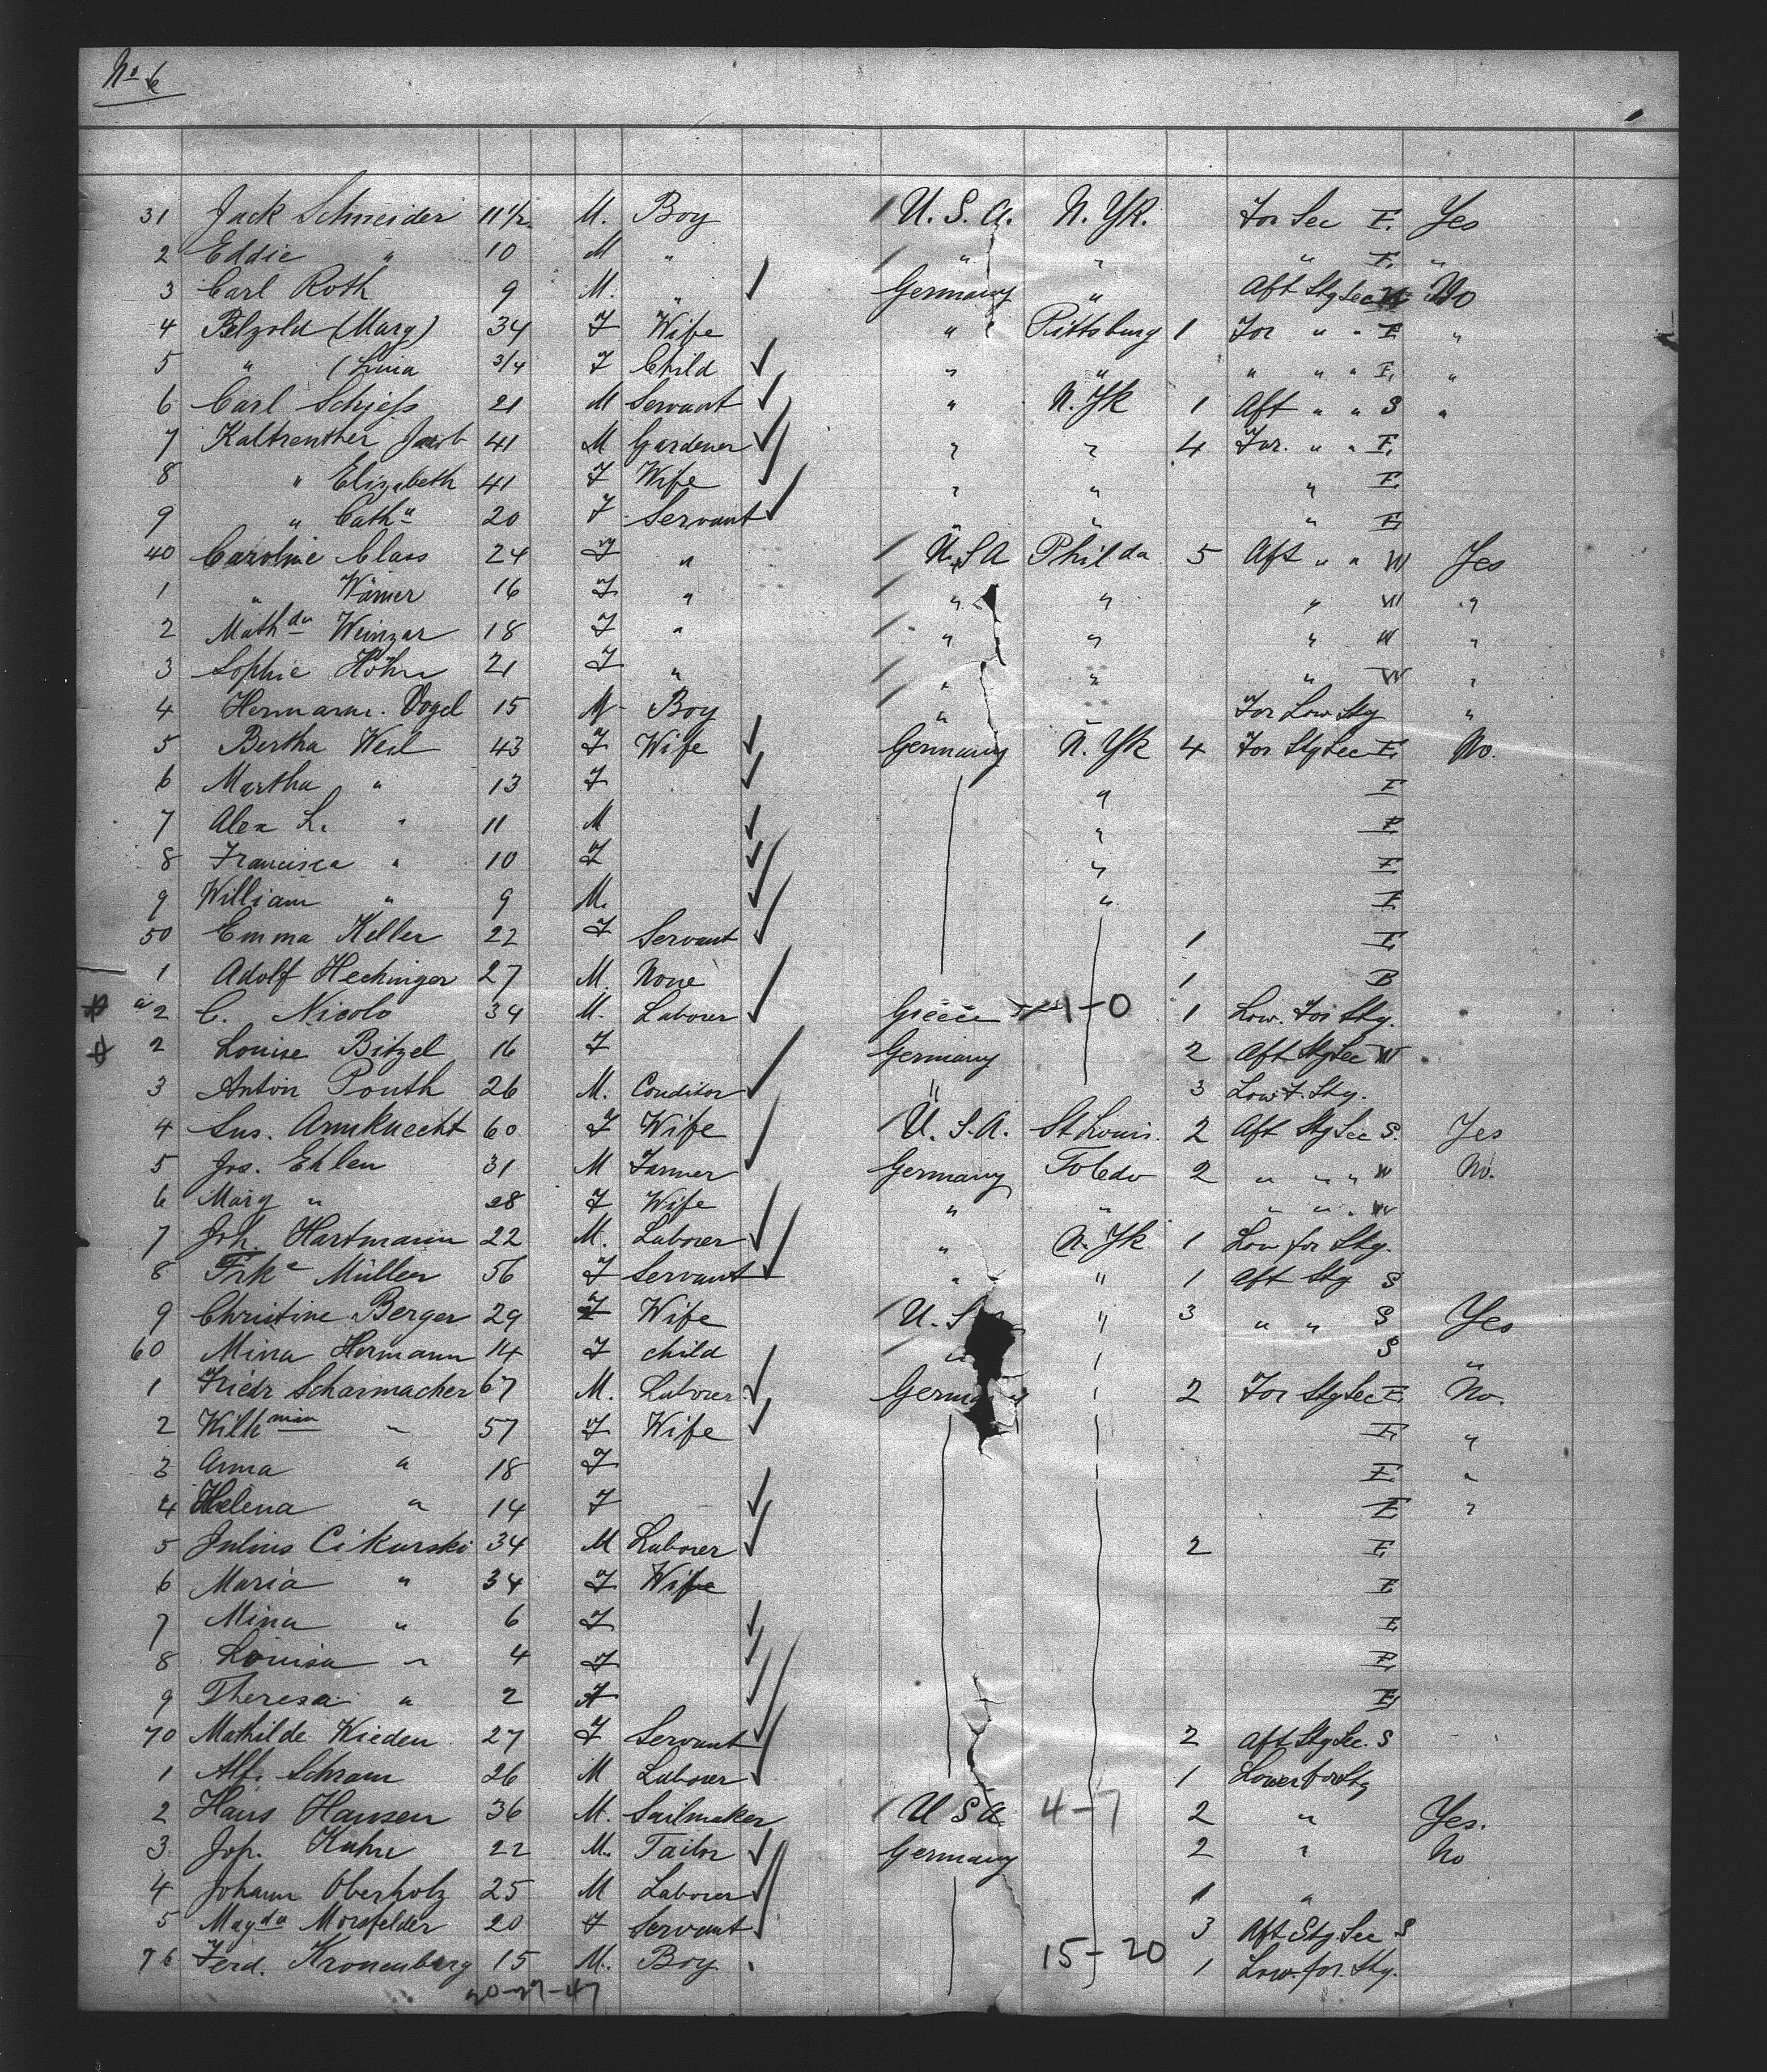 No 6
31 Jack Schneider 11 1/2 M. Boy U. S. A. N. Yk. For Sec E. Yes
2 Eddie " 10 M " " " " E. "
3 Carl Roth 9 M. " Germany " Aft Stg Sec No
4 Petzold (Marg) 34 F Wife " Pittsburg 1 For " " E "
5 " (Lina 3/4 F Child " " " " " E. "
6 Carl Schiess 21 M Servant " N. Yk 1 Aft " " S "
7 Kaltrenther Jacob 41 M Gardener " " 4 For. " " E.
8 " Elizabeth 41 F Wife " " " E
9 " Cath a 20 F Servant " " " E
40 Caroline Class 24 F " U. S A Philda 5 Aft " " W Yes
1 " Wörner 16 F " " " " W "
2 Math da Weinzar 18 F " " " " W "
3 Sophie Höhn 21 F " " " " W "
4 Hermann. Vogel 15 M Boy " " For Low Stg "
5 Bertha Weil 43 F Wife Germany N. Yk 4 For Stg Sec E. No.
6 Martha " 13 F " E
7 Alex L. " 11 M " E
8 Francisca " 10 F " E
9 William " 9 M. " E
50 Emma Keller 22 F Servant 1 E
1 Adolf Hechinger 27 M. None 1 B
a 2 C. Nicolo 34 M. Laborer Greece 1-0 1 Low. For Stg.
2 Louise Bitzel 16 F Germany 2 Aft Stg Sec W
3 Anton Pouth 26 M. Conditor " 3 Low. F. Stg.
4 Sus. Armknecht 60 F Wife U. S. A. St Louis. 2 Aft Stg Sec S. Yes
5 Jos. Ehlen 31 M Farmer Germany Toledo 2 " " " W No.
6 Marg " 28 F Wife " " " " " W
7 Joh. Hartmann 22 M. Laborer " N. Yk 1 Low for Stg.
8 Frk e Müller 56 F Servant " " 1 Aft Stg S
9 Christine Berger 29 F Wife U. S " 3 " " S Yes
60 Mina Hermann 14 F child " " S "
1 Friedr Scharmacher 67 M. Laborer Germany " 2 For Stg Sec E. No.
2 Wilh mine " 57 F Wife E. "
3 Anna " 18 F E. "
4 Helena " 14 F E "
5 Julius Cikurski 34 M Laborer 2 E
6 Maria " 34 F Wife E
7 Mina " 6 F E
8 Louisa " 4 F E
9 Theresa " 2 F E
70 Mathilde Wieden 27 F Servant 2 Aft Stg Sec. S
1 Alf. Schram 26 M Laborer 1 Lower For Stg
2 Hans Hansen 36 M. Sailmaker U S A 4-7 2 " Yes.
3 Jos. Kuhn 22 M. Tailor Germany 2 " No
4 Johann Oberholz 25 M Laborer 1 "
5 Mag da Morsfelder 20 F Servant 3 Aft Stg Sec S
76 Ferd. Kronenberg 15 M. Boy 15-20 1 Low. for. Stg.
20-27-47